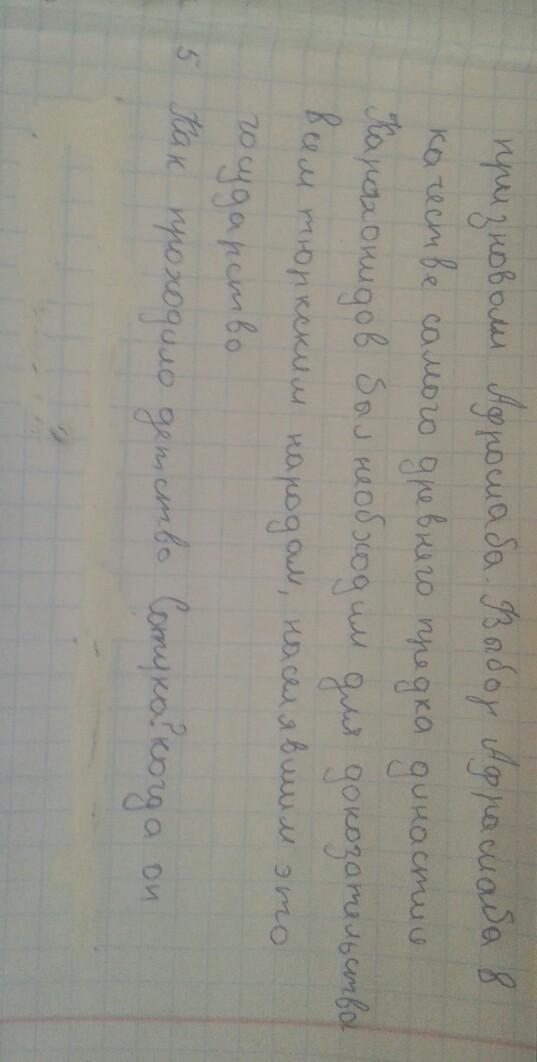 признавали Афросиаба. Выбор Афросиаба в
качестве самого древнего предка династие
Караханидов был необходим для доказательства
всем тюркским народам, населявшим это
государство
5 Как проходило детство Сатука? когда он